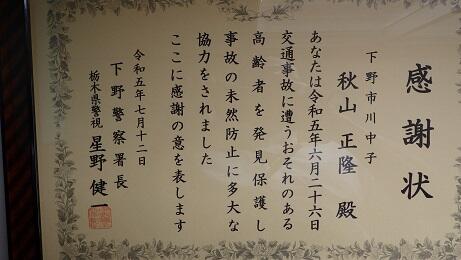 感謝状
下野市川中子
秋山 正隆 殿
あなたは令和五年六月二十六日
交通事故に遭うおそれのある
高齢者を発見保護し
事故の未然防止に多大な
協力をされました
ここに感謝の意を表します
令和五年七月十二日
下野警察署長
栃木県警視 星野 健一